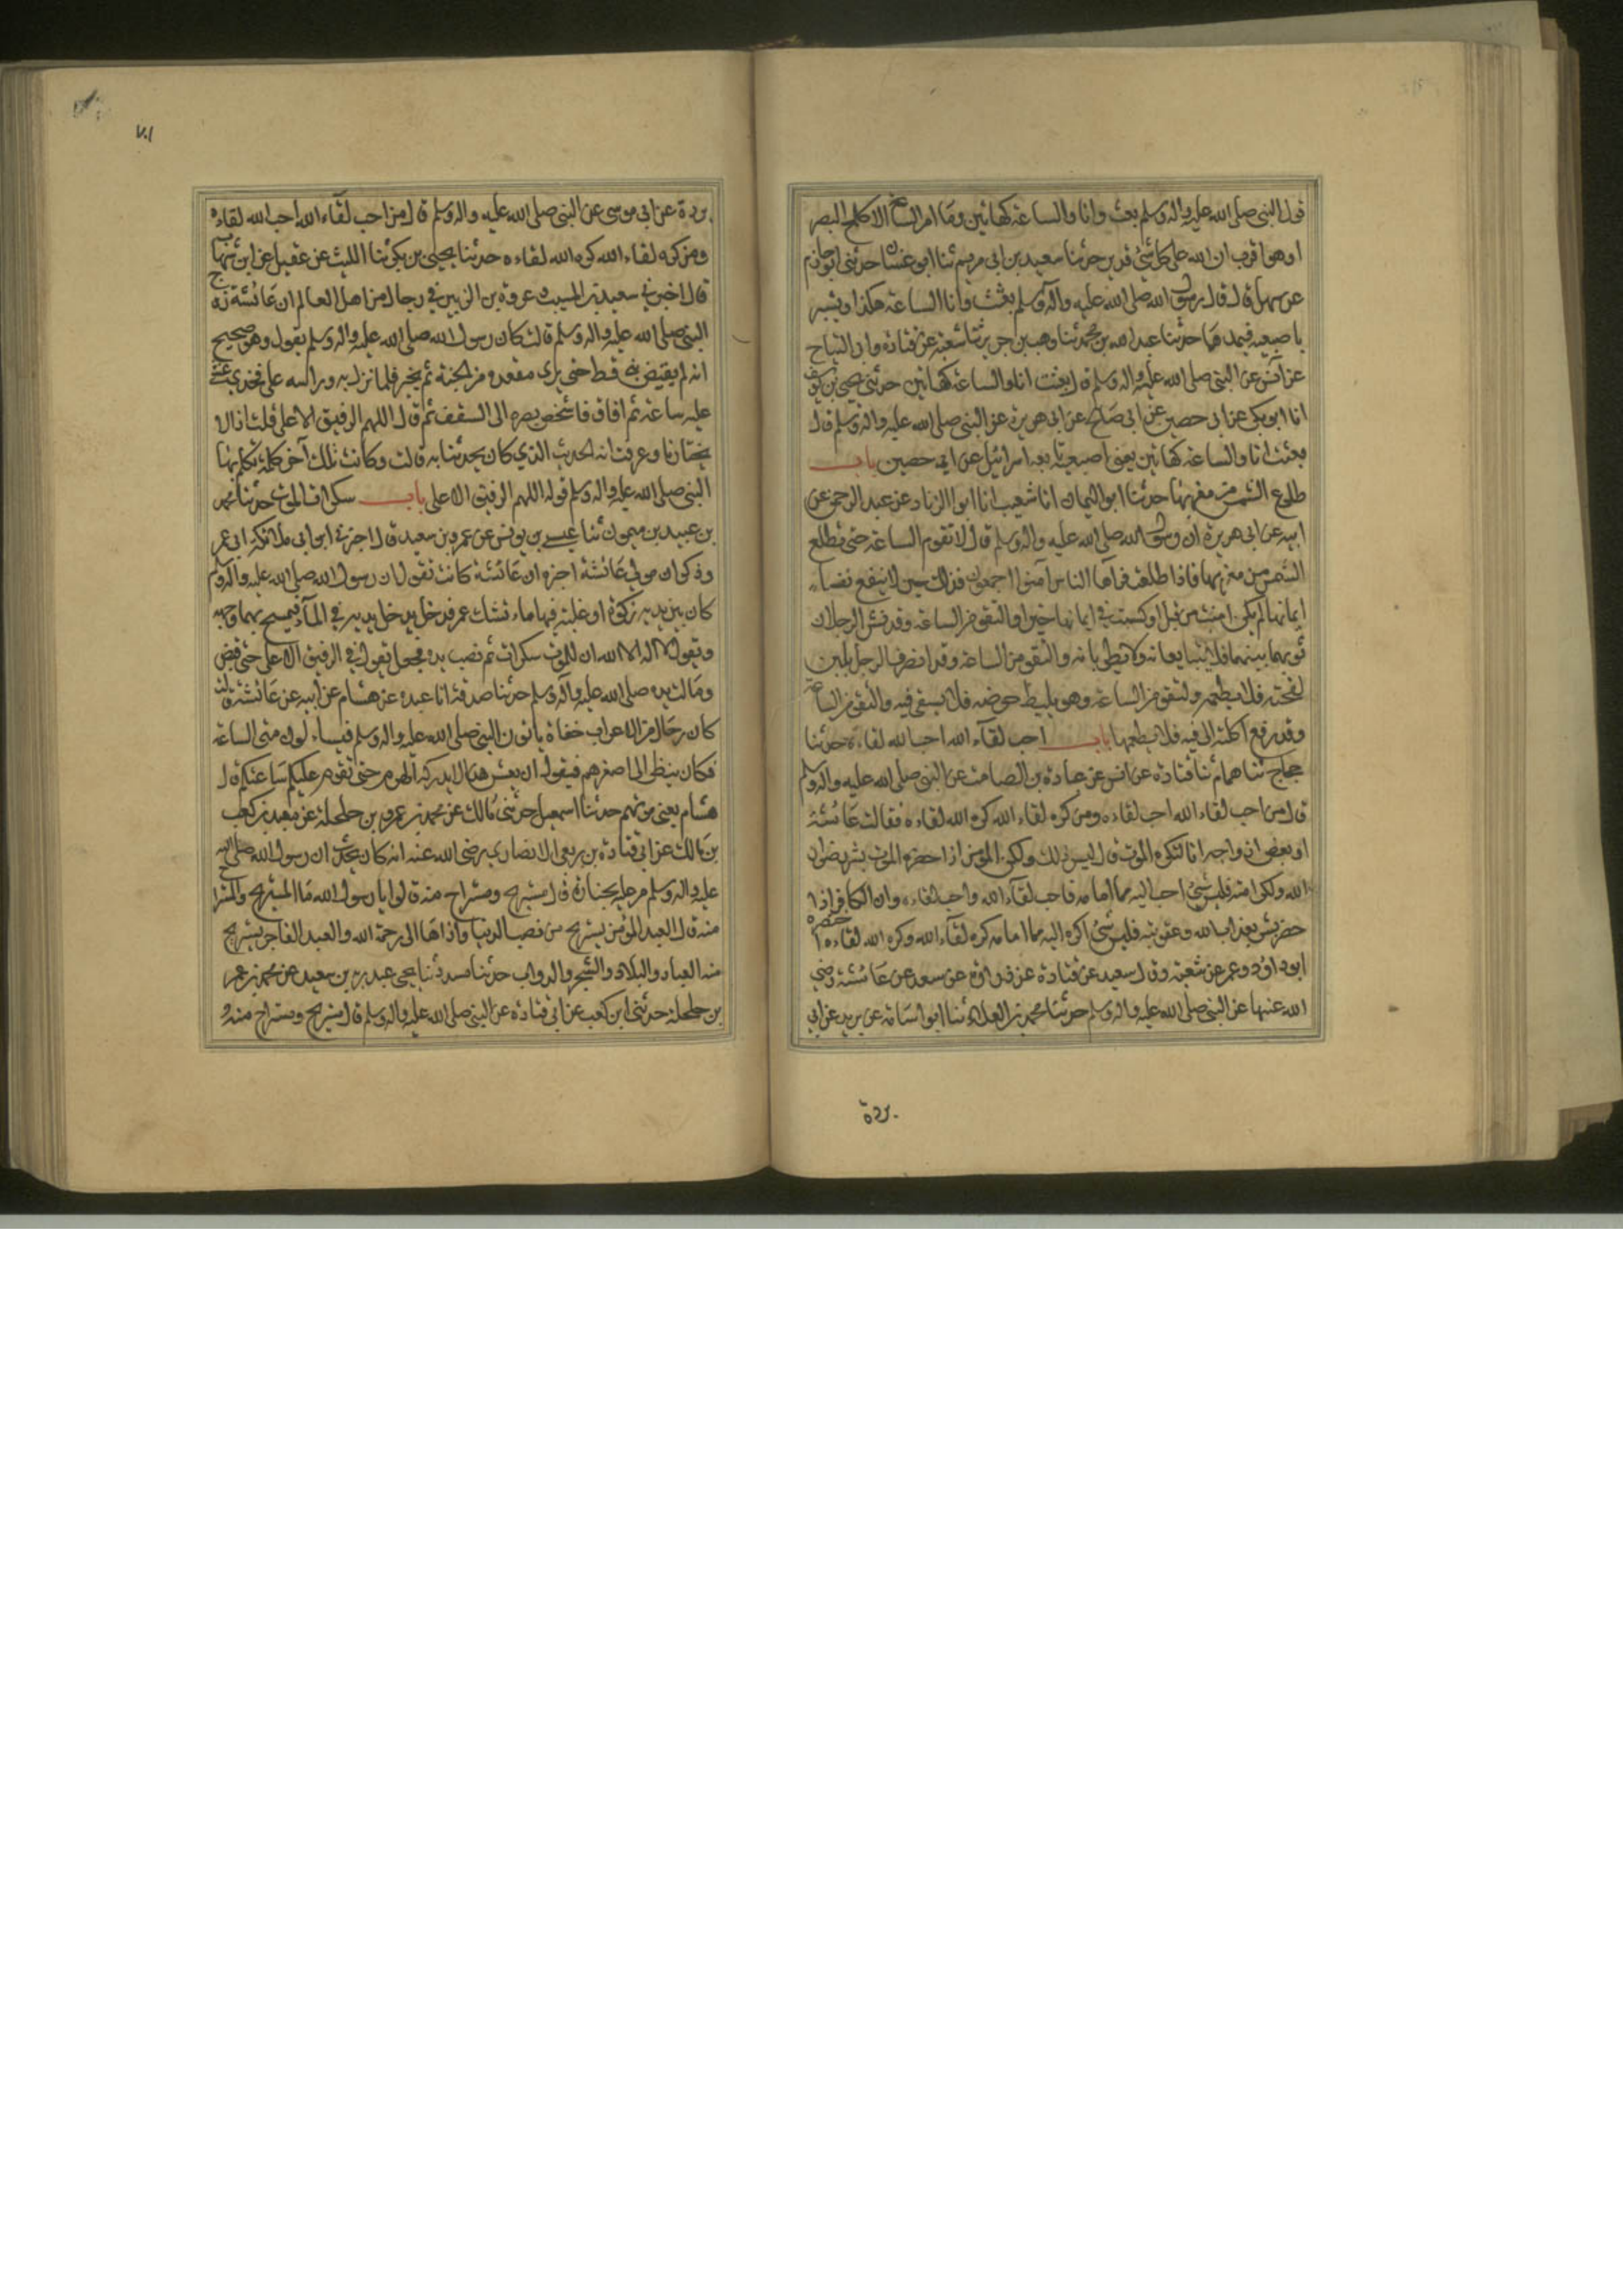 قول النبي صلى الله عليه واله وسلم بعثت وانا والساعة كهاتين وما امر الساعة الا كلمح البصر
او هو اقرب ان الله على كل شيء قدير حدثنا سعيد بن ابي مريم ثنا ابو غسان حدثني ابو حازم
عن سهل قال قال رسول الله صلى الله عليه وآله وسلم بعثت وانا الساعة هكذا ويشير
باصبعيه فيمدهما حدثنا عبد الله بن محمد ثنا وهب بن جرير ثنا شعبة عن قتادة وابي التياح
عن انس عن النبي صلى الله عليه واله وسلم قال بعثت انا والساعة كهاتين حدثني يحيى بن يوسف
انا ابو بكر عن ابي حصين عن ابي صالح عن ابي هريرة عن النبي صلى الله عليه واله وسلم قال
بعثت انا والساعة كهاتين يعني اصبعين تابعه اسرائيل عن ابي حصين باب
طلوع الشمس من مغربها حدثنا ابو اليمان انا شعيب انا ابو الزناد عن عبد الرحمن عن
ابيه عن ابي هريرة ان رسول الله صلى الله عليه واله وسلم قال لا تقوم الساعة حتى تطلع
الشمس من مغربها فاذا طلعت فرآها الناس آمنوا اجمعون فذلك حين لا ينفع نفسا
ايمانها لم تكن امنت من قبل او كسبت في ايمانها خيرا ولتقومن الساعة وقد نشر الرجلان
ثوبهما بينهما فلا يتبايعانه ولا يطويانه ولتقومن الساعة وقد انصرف الرجل بلبن
لقحته فلا يطعمه ولتقومن الساعة وهو يليط حوضه فلا يسقي فيه ولتقومن الساعة
وقد رفع اكلته الى فيه فلا يطعمها باب احب لقآء الله احب الله لقاءه حدثنا
حجاج ثنا همام ثنا قتادة عن انس عن عبادة بن الصامت عن النبي صلى الله عليه واله وسلم
قال من احب لقاء الله احب لقاءه ومن كره لقاء الله كره الله لقاءه فقالت عائشة
او بعض ازواجه انا لنكره الموت قال ليس ذلك ولكن المؤمن اذا حضره الموت بشر برضوان
الله وكرامته فليس شيء احب اليه مما امامه فاحب لقآء الله واحب لقاءه وان الكافر اذا
حضر بشر بعذاب الله وعقوبته فليس شيء اكره اليه مما امامه كره لقآء الله وكره الله لقاءه
ابو داود وعمر عن شعبة وقال سعيد عن قتادة عن زرارة عن سعد عن عائشة رضي
الله عنها عن النبي صلى الله عليه واله وسلم حدثنا محمد بن العلاء ثنا ابو اسامة عن بريد عن ابي
بردة
٧٠١
بردة عن ابي موسى عن النبي صلى الله عليه واله وسلم قال من احب لقآء الله احب الله لقاءه
ومن كره لقاء الله كره الله لقاءه حدثنا يحيى بن بكير ثنا الليث عن عقيل عن ابن شهاب
قال اخبرني سعيد بن المسيب وعروة بن الزبير في رجال من اهل العلم ان عائشة زوج
النبي صلى الله عليه واله وسلم قالت كان رسول الله صلى الله عليه واله وسلم يقول وهو صحيح
انه لم يقبض نبي قط حتى يرى مقعده من الجنة ثم يخير فلما نزل به وراسه على فخذي غشي
عليه ساعة ثم افاق فاشخص بصره الى السقف ثم قال اللهم الرفيق الاعلى قلت اذا لا
يختارنا وعرفت انه الحديث الذي كان يحدثنا به قالت وكانت تلك آخر كلمة تكلم بها
النبي صلى الله عليه واله وسلم قوله اللهم الرفيق الاعلى باب سكرات الموت حدثنا محمد
بن عبيد بن ميمون ثنا عيسى بن يونس عن عمر بن سعيد قال اخبرني ابن ابي مليكة ان ابا عمرو
وذكوان مولى عائشة اخبره ان عائشة كانت تقول ان رسول الله صلى الله عليه واله وسلم
كان بين يديه ركوة او علبة فيها ماء فشك عمر فدخل يدخل يديه في المآء فيمسح بهما وجهه
ويقول لا اله الا الله ان للموت سكرات ثم نصب يده فجعل يقول في الرفيق الاعلى حتى قبض
ومالت يده صلى الله عليه وآله وسلم حدثنا صدقة انا عبدة عن هشام عن ابيه عن عائشة قالت
كان رجال من الاعراب حفاة ياتون النبي صلى الله عليه واله وسلم فيساءلونه متى الساعة
فكان ينظر الى اصغرهم فيقول ان يعش هذا لا يدركه الهرم حتى تقوم عليكم ساعتكم قال
هشام يعني موتهم حدثنا اسمعيل حدثني مالك عن محمد بن عمرو بن حلحلة عن معبد بن كعب
بن مالك عن ابي قتادة بن ربعي الانصاري رضي الله عنه انه كان يحدث ان رسول الله صلى الله
عليه واله وسلم مر عليه بجنازة قال مستريح ومستراح منه قالوا يا رسول الله ما المستريح والمستراح
منه قال العبد المؤمن يستريح من نصب الدنيا واذاها الى رحمة الله والعبد الفاجر يستريح
منه العباد والبلاد والشجر والدواب حدثنا مسدد ثنا يحيى عبد ربه بن سعيد عن محمد بن عمر
بن حلحلة حدثني ابن كعب عن ابي قتادة عن النبي صلى الله عليه واله وسلم قال مستريح ومستراح منه و